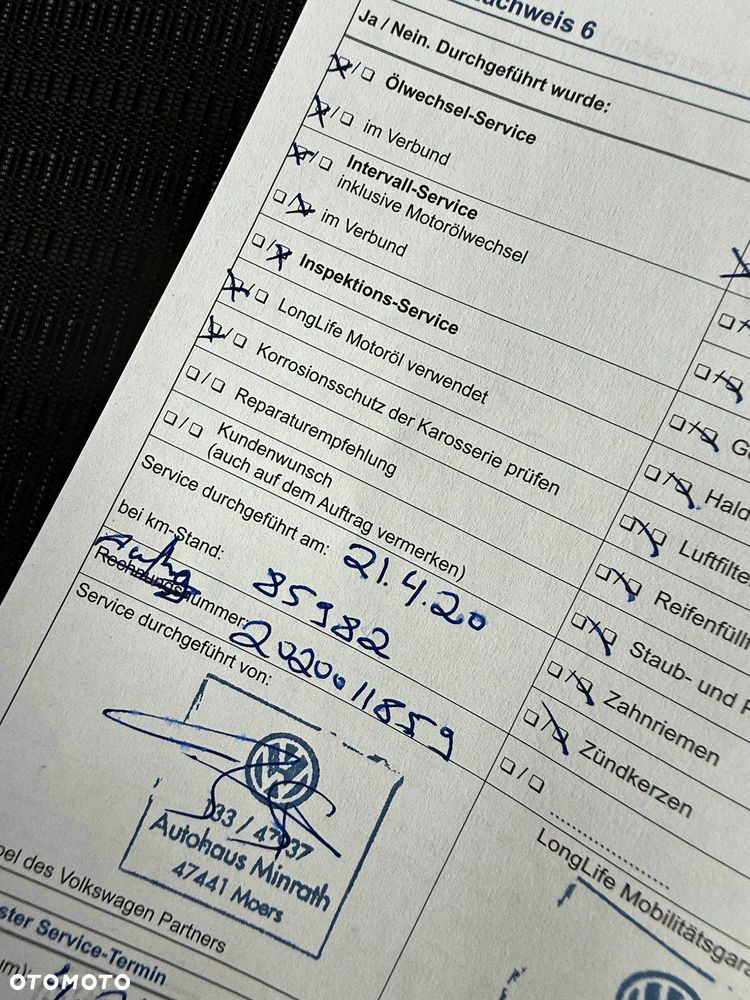 chweis 6
Ja / Nein. Durchgeführt wurde:
Ölwechsel-Service
im Verbund
Intervall-Service
inklusive Motorölwechsel
im Verbund
Inspektions-Service
LongLife Motoröl verwendet
Korrosionsschutz der Karosserie prüfen
Reparaturempfehlung
Kundenwunsch
(auch auf dem Auftrag vermerken)
Service durchgeführt am: 21.4.20
bei km-Stand: 85982
Rechnungsnummer: 2020011859
Service durchgeführt von:
133 / 47937
Autohaus Minrath
47441 Moers
pel des Volkswagen Partners
ster Service-Termin
um)
Hald
Luftfilte
Reifenfüll
Staub- und P
Zahnriemen
Zündkerzen
LongLife Mobilitätsgar
OTOMOTO